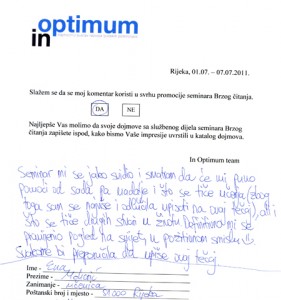 optimum
in
Rijeka, 01.07. – 07.07.2011.
Slažem se da se moj komentar koristi u svrhu promocije seminara Brzog čitanja.
DA NE
Najljepše Vas molimo da svoje dojmove sa službenog dijela seminara Brzog
čitanja zapišete ispod, kako bismo Vaše impresije uvrstili u katalog dojmova.
In Optimum team
Seminar mi se jako svidio i smatram da će mi puno
pomoći od sada pa nadalje i što se tiče učenja (zbog
toga sam se najviše i odlučila upisati na ovaj tečaj), ali i
što se tiče drugih stvari u životu. Definitivno mi se
promijenio pogled na svijet u pozitivnom smislu!
Svakome bi preporučila da upiše ovaj tečaj.
Ime - Ema
Prezime -
Zanimanje - učenica
Poštanski broj i mjesto - 51000 Rijeka